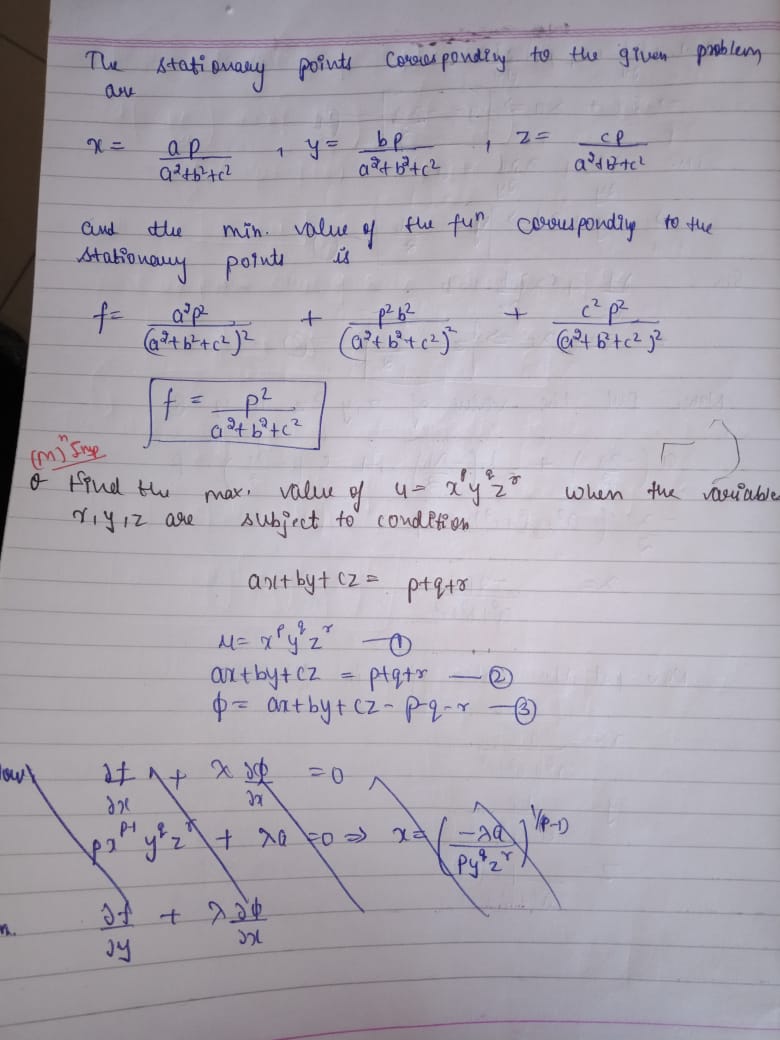 The stationary points corresponding to the given problem
are
x = ap/(a²+b²+c²) , y = bp/(a²+b²+c²) , z = cp/(a²+b²+c²)
and the min. value of the fuⁿ corresponding to the
stationary points is
f = a²p²/(a²+b²+c²)² + p²b²/(a²+b²+c²)² + c²p²/(a²+b²+c²)²
f = p²/(a²+b²+c²)
(m)ⁿ Imp
Q Find the max. value of u = x^p y^q z^r when the variable
x, y, z are subject to condition
ax+by+cz = p+q+r
u = x^p y^q z^r — ①
ax+by+cz = p+q+r — ②
φ = ax+by+cz-p-q-r — ③
∂f/∂x + λ ∂φ/∂x = 0
px^(p-1) y^q z^r + λa = 0 ⇒ x = (-λa/(py^q z^r))^(1/(p-1))
∂f/∂y + λ ∂φ/∂x